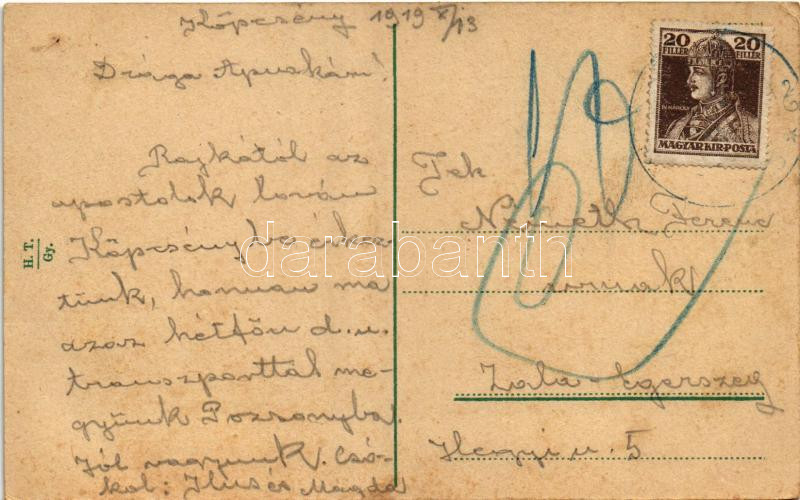 Köpcsény 1919 X/13
Drága Apuskám!
Rajkától az
apostolok lován
Köpcsénybe érkez-
tünk, honnan ma
azaz hétfőn d.u.
transzporttal me-
gyünk Pozsonyba.
Jól vagyunk. Csó-
kol: Ilus és Magda
H. T.
Gy.
20 FILLÉR 20 FILLÉR
MAGYAR KIR. POSTA
50
Tek
Németh Ferenc
úrnak
Zala-Egerszeg
Hegyi u. 5
darabanth